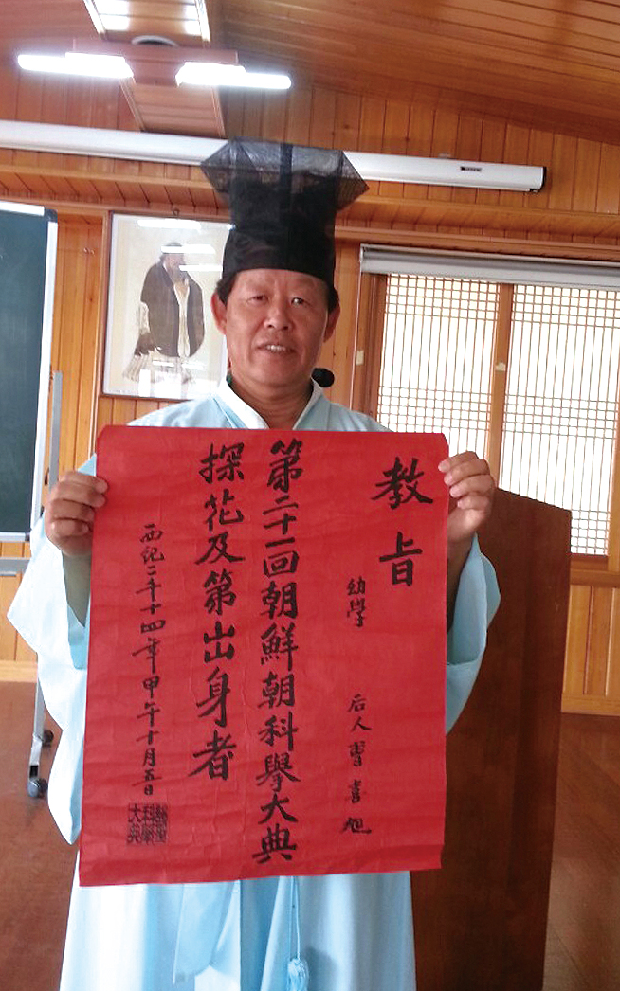 教旨
幼學 后人曺喜旭
第二十一回朝鮮朝科擧大典
探花及第出身者
西紀二千十四年甲午十月五日